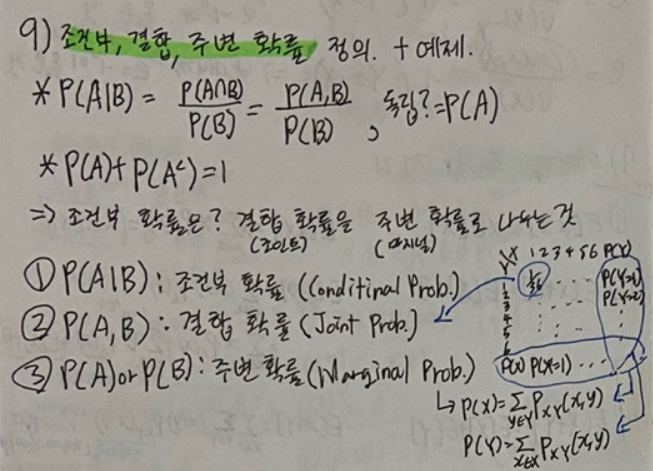 9) 조건부, 결합, 주변 확률 정의. + 예제.
* P(A|B) = P(A∩B)/P(B) = P(A,B)/P(B), 독립? = P(A)
* P(A) + P(Aᶜ) = 1
⇒ 조건부 확률은? 결합 확률을 주변 확률로 나누는 것
(조인트) (마지널)
① P(A|B) : 조건부 확률 (Conditinal Prob.)
② P(A,B) : 결합 확률 (Joint Prob.)
③ P(A) or P(B) : 주변 확률 (Marginal Prob.)
Y\X 1 2 3 4 5 6 P(Y)
1 1/36 · · · · P(Y=1)
2 P(Y=2)
3
4
5
6
P(X) P(X=1) · · ·
↳ P(X) = ∑_{y∈Y} P_{XY}(x,y)
P(Y) = ∑_{x∈X} P_{XY}(x,y)